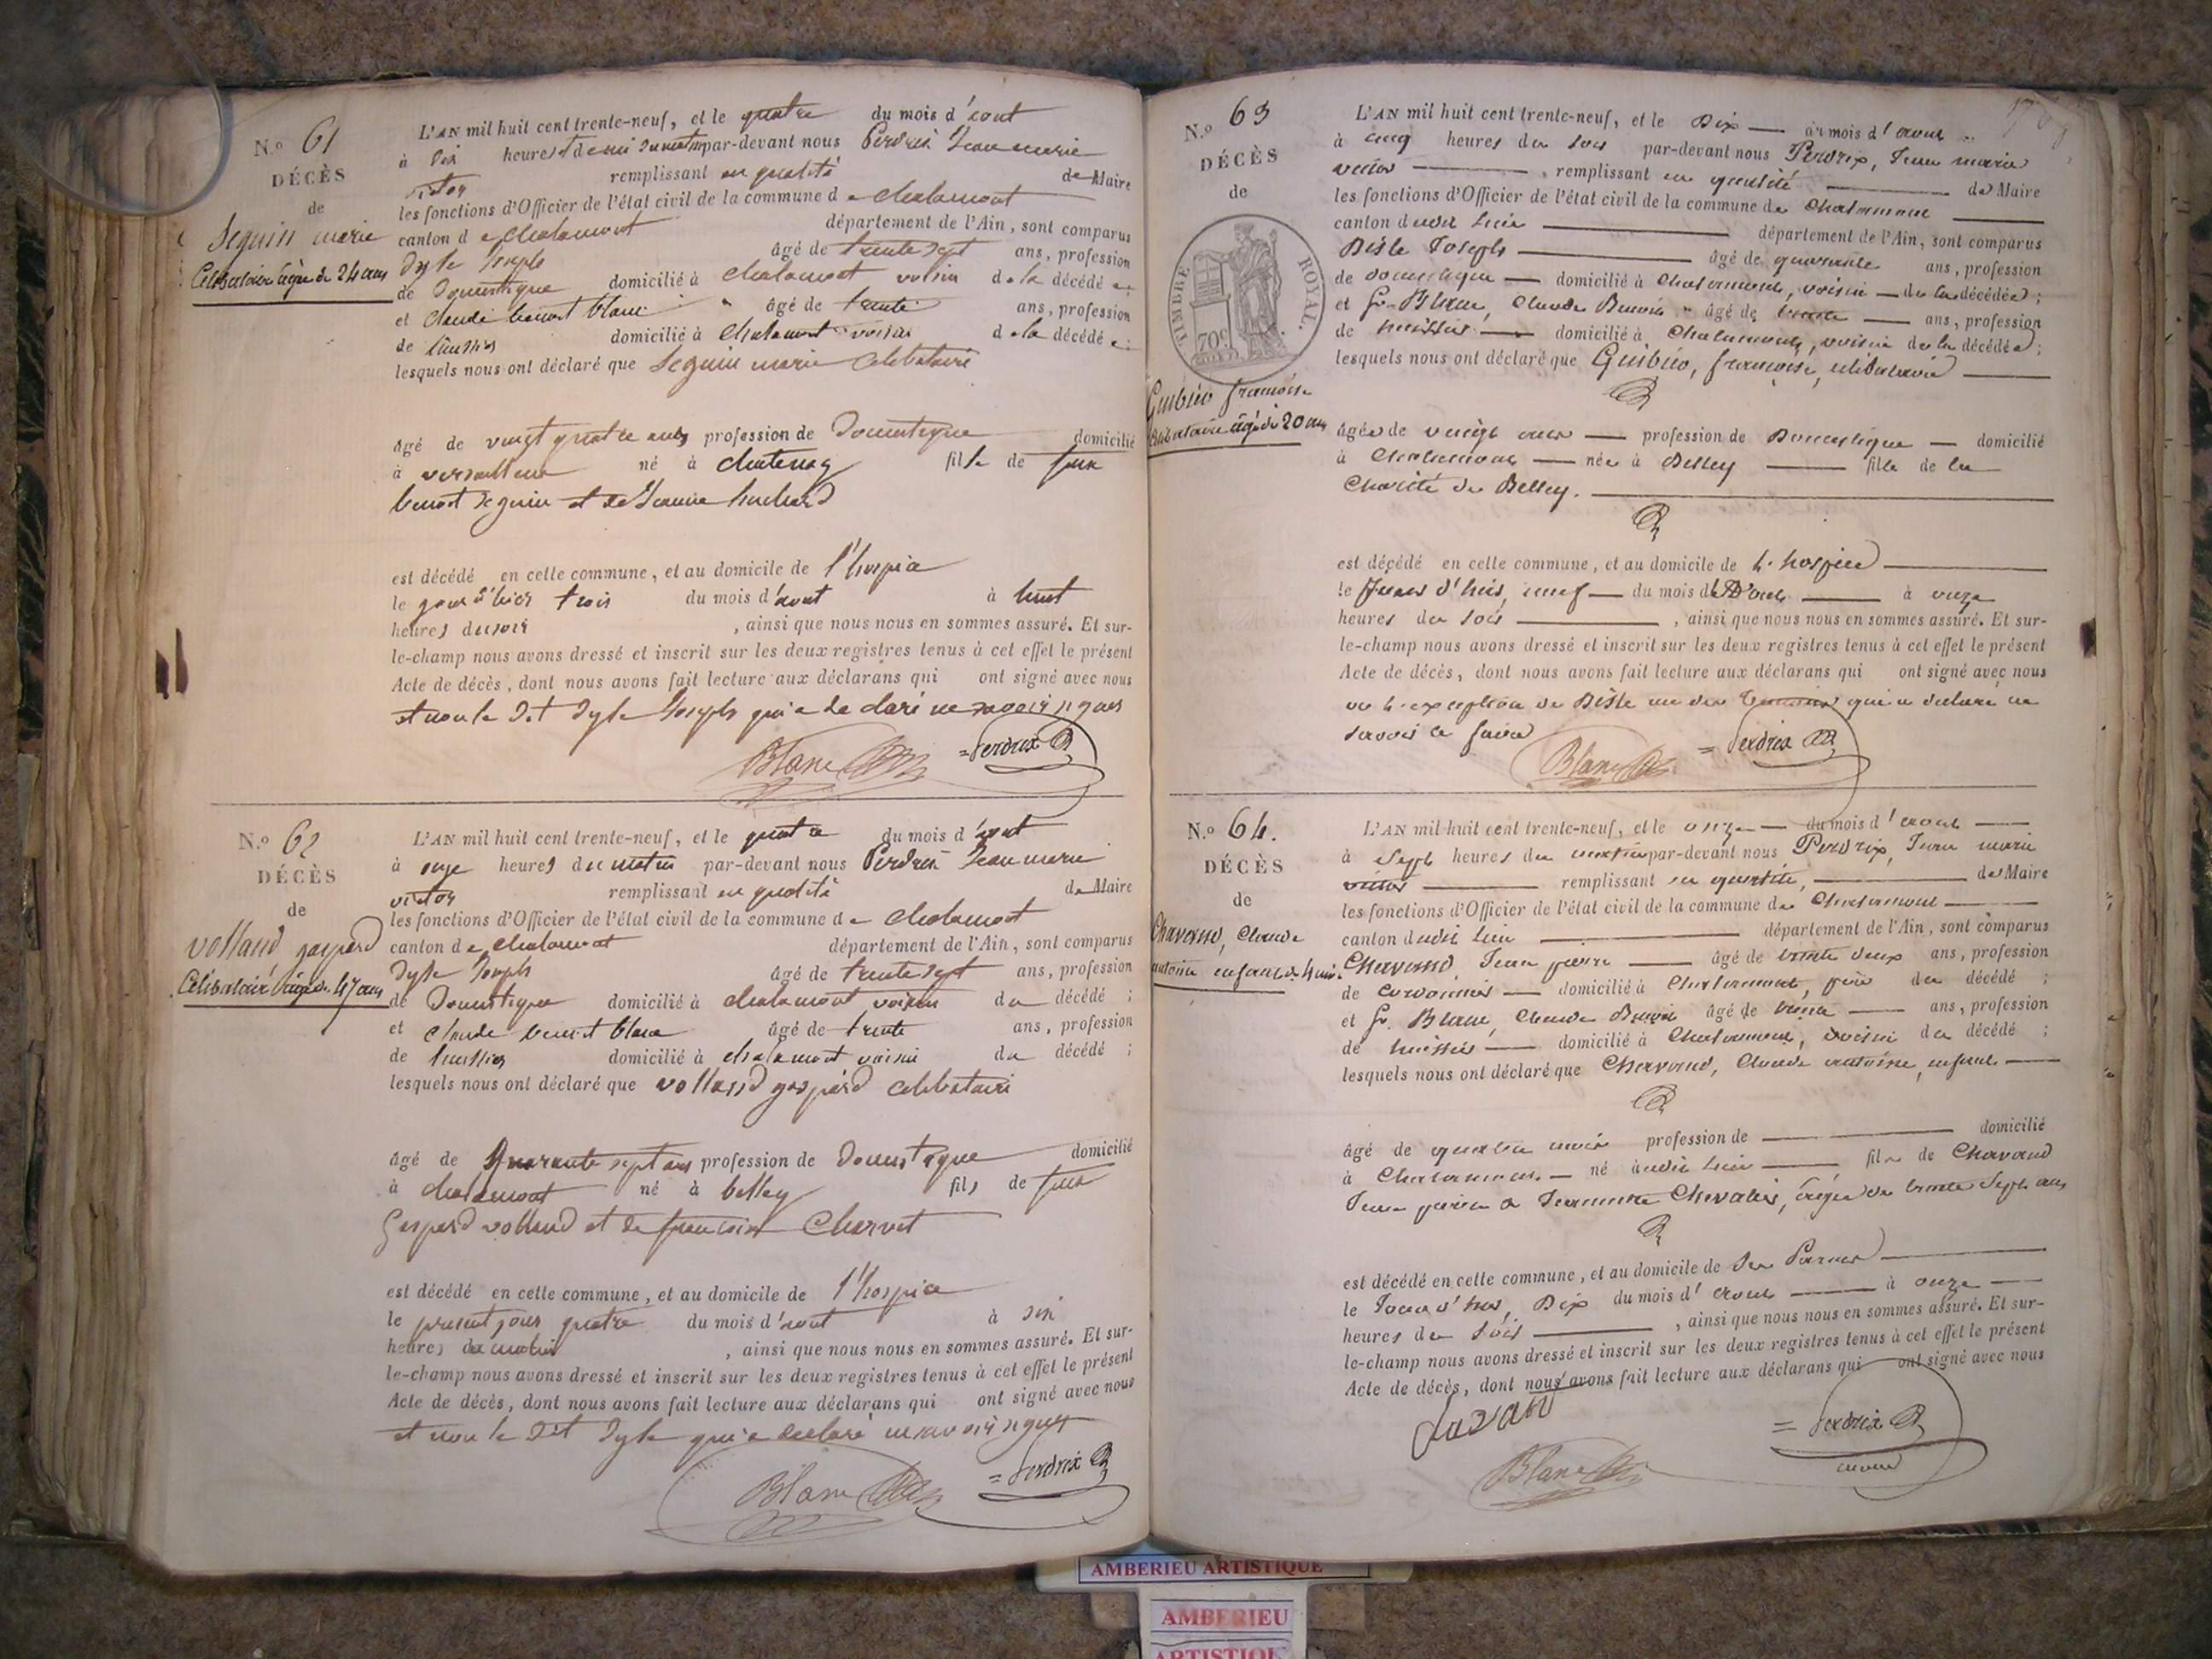 N.º 61
DÉCÈS
de
Seguin marie
Célibataire âgée de 24 ans
L'AN mil huit cent trente-neuf, et le quatre du mois d'aout
à dix heures et demi du matin par-devant nous Perdrix Jean marie
victor remplissant en qualité de Maire
les fonctions d'Officier de l'état civil de la commune de chalamont
canton de chalamont département de l'Ain, sont comparus
Dyle Joseph âgé de trente sept ans, profession
de Domestique domicilié à chalamont voisin de la décédée;
et claude benoit blanc âgé de trente ans, profession
de huissier domicilié à chalamont voisin de la décédée;
lesquels nous ont déclaré que Seguin marie celibataire
âgé de vingt quatre ans profession de Domestique domicilié
à versailleux né à chatenay fille de feux
benoit Seguin et de Jeanne
est décédé en cette commune, et au domicile de l'hospice
le jour d'hier trois du mois d'aout à huit
heures du soir, ainsi que nous nous en sommes assuré. Et sur-
le-champ nous avons dressé et inscrit sur les deux registres tenus à cet effet le présent
Acte de décès, dont nous avons fait lecture aux déclarans qui ont signé avec nous
et non le dit Dyle Joseph qui a declaré ne savoir signer
Blanc Perdrix
N.º 62
DÉCÈS
de
Volland, gaspard
Célibataire âgé de 47 ans
L'AN mil huit cent trente-neuf, et le quatre du mois d'aout
à onze heures du matin par-devant nous Perdrix Jean marie
victor remplissant en qualité de Maire
les fonctions d'Officier de l'état civil de la commune de chalamont
canton de chalamont département de l'Ain, sont comparus
Dyle Joseph âgé de trente sept ans, profession
de Domestique domicilié à chalamont voisin du décédé;
et claude benoit blanc âgé de trente ans, profession
de huissier domicilié à chalamont voisin du décédé;
lesquels nous ont déclaré que volland gaspard celibataire
âgé de quarante sept ans profession de domestique domicilié
à chalamont né à belley fils de feux
Gaspard volland et de francoise Charvet
est décédé en cette commune, et au domicile de l'hospice
le present jour quatre du mois d'aout à six
heures du matin, ainsi que nous nous en sommes assuré. Et sur-
le-champ nous avons dressé et inscrit sur les deux registres tenus à cet effet le présent
Acte de décès, dont nous avons fait lecture aux déclarans qui ont signé avec nous
et non le dit Dyle qui a declaré ne savoir signer
Blanc Perdrix
N.º 63
DÉCÈS
de
TIMBRE ROYAL.
70c
françoise
Célibataire âgée de 20 ans
L'AN mil huit cent trente-neuf, et le Dix du mois d'aout
à cinq heures du soir par-devant nous Perdrix, Jean marie
victor, remplissant en qualité de Maire
les fonctions d'Officier de l'état civil de la commune de Chalamont
canton dudit lieu département de l'Ain, sont comparus
Joseph âgé de quarante ans, profession
de domestique domicilié à Chalamont, voisin de la décédée;
et Sr Blanc, Claude Benoit âgé de trente ans, profession
de huissier domicilié à Chalamont, voisin de la décédée;
lesquels nous ont déclaré que françoise, célibataire
âgée de vingt ans profession de Domestique domicilié
à Chalamont née à Belley fille de la
Charité de Belley.
est décédé en cette commune, et au domicile de L'hospice
le Jour d'hier, neuf du mois d'Août à onze
heures du soir, ainsi que nous nous en sommes assuré. Et sur-
le-champ nous avons dressé et inscrit sur les deux registres tenus à cet effet le présent
Acte de décès, dont nous avons fait lecture aux déclarans qui ont signé avec nous
à l'exception de un des temoins qui a déclaré ne
savoir le faire
Blanc Perdrix
N.º 64.
DÉCÈS
de
Chavand, Claude
antoine enfant de 4 mois
L'AN mil huit cent trente-neuf, et le onze du mois d'aout
à Sept heures du matin par-devant nous Perdrix, Jean marie
victor remplissant en qualité, de Maire
les fonctions d'Officier de l'état civil de la commune de Chalamont
canton dudit lieu département de l'Ain, sont comparus
Chavand, Jean pierre âgé de trente deux ans, profession
de cordonnier domicilié à Chalamont, père du décédé;
et Sr. Blanc, Claude Benoit âgé de trente ans, profession
de huissier domicilié à Chalamont, voisin du décédé;
lesquels nous ont déclaré que Chavand, Claude antoine, enfant
âgé de quatre mois profession de domicilié
à Chalamont né audit lieu fils de Chavand
Jean pierre et Jeannette Chevalier, âgée de trente Sept ans
est décédé en cette commune, et au domicile de Ses Parens
le Jour d'hier, Dix du mois d'aout à onze
heures du Soir, ainsi que nous nous en sommes assuré. Et sur-
le-champ nous avons dressé et inscrit sur les deux registres tenus à cet effet le présent
Acte de décès, dont nous avons fait lecture aux déclarans qui ont signé avec nous
Blanc Perdrix
AMBERIEU ARTISTIQUE
AMBERIEU